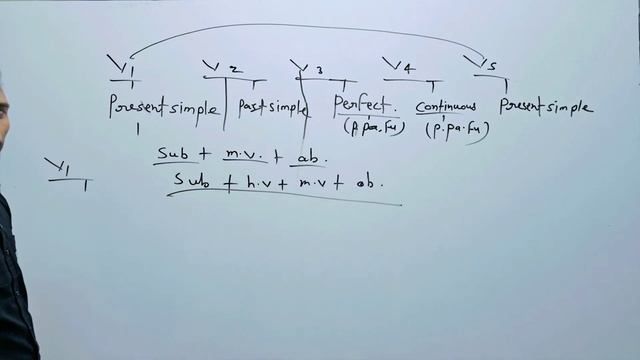 V1 V2 V3 V4 V5
Present simple Past simple Perfect. Continuous Present simple
(p. pa. Fu) (p. pa. Fu)
Sub + m.v. + ob.
V1 Sub + h.v + m.v + ob.